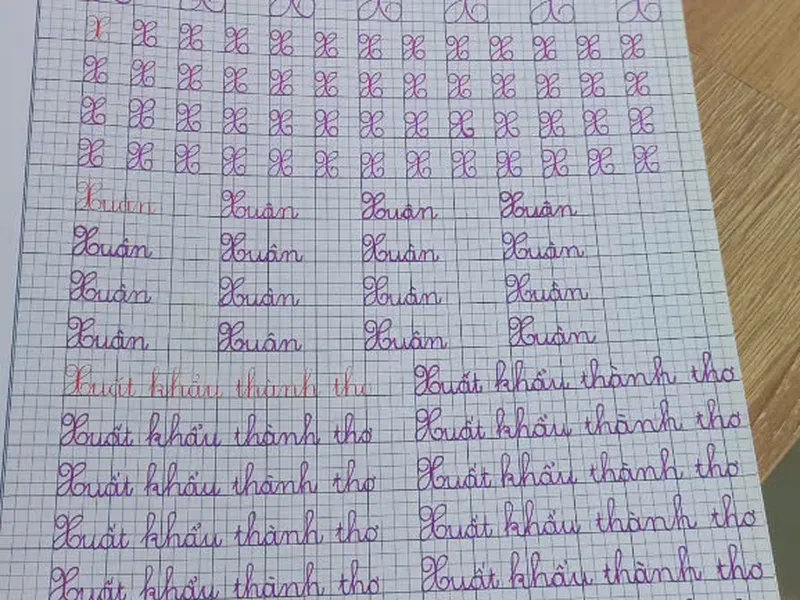 X X X X X X X X X X X X X
X X X X X X X X X X X X X
X X X X X X X X X X X X X
X X X X X X X X X X X X X
Xuân Xuân Xuân Xuân
Xuân Xuân Xuân Xuân
Xuân Xuân Xuân Xuân
Xuân Xuân Xuân Xuân
Xuất khẩu thành thơ Xuất khẩu thành thơ
Xuất khẩu thành thơ Xuất khẩu thành thơ
Xuất khẩu thành thơ Xuất khẩu thành thơ
Xuất khẩu thành thơ Xuất khẩu thành thơ
Xuất khẩu thành thơ Xuất khẩu thành thơ